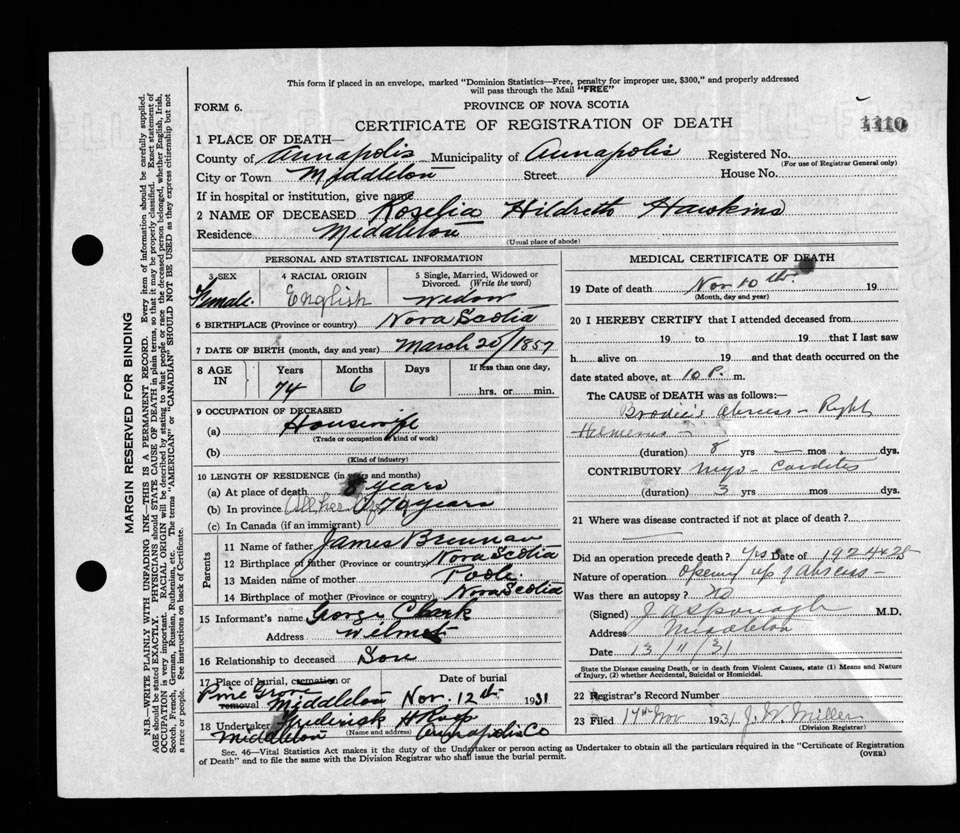 This form if placed in an envelope, marked "Dominion Statistics—Free, penalty for improper use, $300," and properly addressed
will pass through the Mail "FREE"
FORM 6.
PROVINCE OF NOVA SCOTIA
CERTIFICATE OF REGISTRATION OF DEATH
1110
1 PLACE OF DEATH—
County of Annapolis Municipality of Annapolis Registered No.
(For use of Registrar General only)
City or Town Middleton Street House No.
If in hospital or institution, give name
2 NAME OF DECEASED Rozelia Hildreth Hawkins
Residence Middleton
(Usual place of abode)
PERSONAL AND STATISTICAL INFORMATION
3 SEX Female.
4 RACIAL ORIGIN English
5 Single, Married, Widowed or Divorced. (Write the word) Widow
6 BIRTHPLACE (Province or country) Nova Scotia
7 DATE OF BIRTH (month, day and year) March 20/1857
8 AGE IN Years 74 Months 6 Days If less than one day, hrs. or min.
9 OCCUPATION OF DECEASED
(a) Housewife
(Trade or occupation or kind of work)
(b)
(Kind of industry)
10 LENGTH OF RESIDENCE (in years and months)
(a) At place of death 8 years
(b) In province All her life 74 years
(c) In Canada (if an immigrant)
Parents
11 Name of father James Brennan
12 Birthplace of father (Province or country) Nova Scotia
13 Maiden name of mother Poole
14 Birthplace of mother Nova Scotia
15 Informant's name George Clark
Address Wilmot
16 Relationship to deceased Son
17 Place of burial, cremation or removal Pine Grove Middleton
Date of burial Nov. 12th 1931
18 Undertaker Frederick H Roop
(Name and address)
Middleton Annapolis Co
MEDICAL CERTIFICATE OF DEATH
19 Date of death Nov 10th. 19
(Month, day and year)
20 I HEREBY CERTIFY that I attended deceased from
19 to 19 that I last saw
h alive on 19 and that death occurred on the
date stated above, at 10 P. m.
The CAUSE of DEATH was as follows:
Brodie's Abscess - Right
Humerus -
(duration) 8 yrs — mos. dys.
CONTRIBUTORY Myo-Carditis
(duration) 3 yrs mos dys.
21 Where was disease contracted if not at place of death?
Did an operation precede death? Yes Date of 1924 & 28
Nature of operation Opening up of Abscess -
Was there an autopsy? No
(Signed) J A Sponagle M.D.
Address Middleton
Date 13/11/31
State the Disease causing Death, or in death from Violent Causes, state (1) Means and Nature
of Injury, (2) whether Accidental, Suicidal or Homicidal.
22 Registrar's Record Number
23 Filed 14th Nov 1931 J. W. Miller
(Division Registrar)
Sec. 46—Vital Statistics Act makes it the duty of the Undertaker or person acting as Undertaker to obtain all the particulars required in the "Certificate of Registration
of Death" and to file the same with the Division Registrar who shall issue the burial permit.
(OVER)
MARGIN RESERVED FOR BINDING
N.B.—WRITE PLAINLY WITH UNFADING INK—THIS IS A PERMANENT RECORD. Every item of information should be carefully supplied.
AGE should be stated EXACTLY. PHYSICIANS should STATE CAUSE OF DEATH in plain terms, so that it may be properly classified. Exact statement of
OCCUPATION is very important. RACIAL ORIGIN will be described by stating to what people or race the deceased person belonged, whether English, Irish,
Scotch, French, German, Russian, Ruthenian, etc. The terms "AMERICAN" or "CANADIAN" SHOULD NOT BE USED as they express citizenship but not
a race or people. See instructions on back of Certificate.